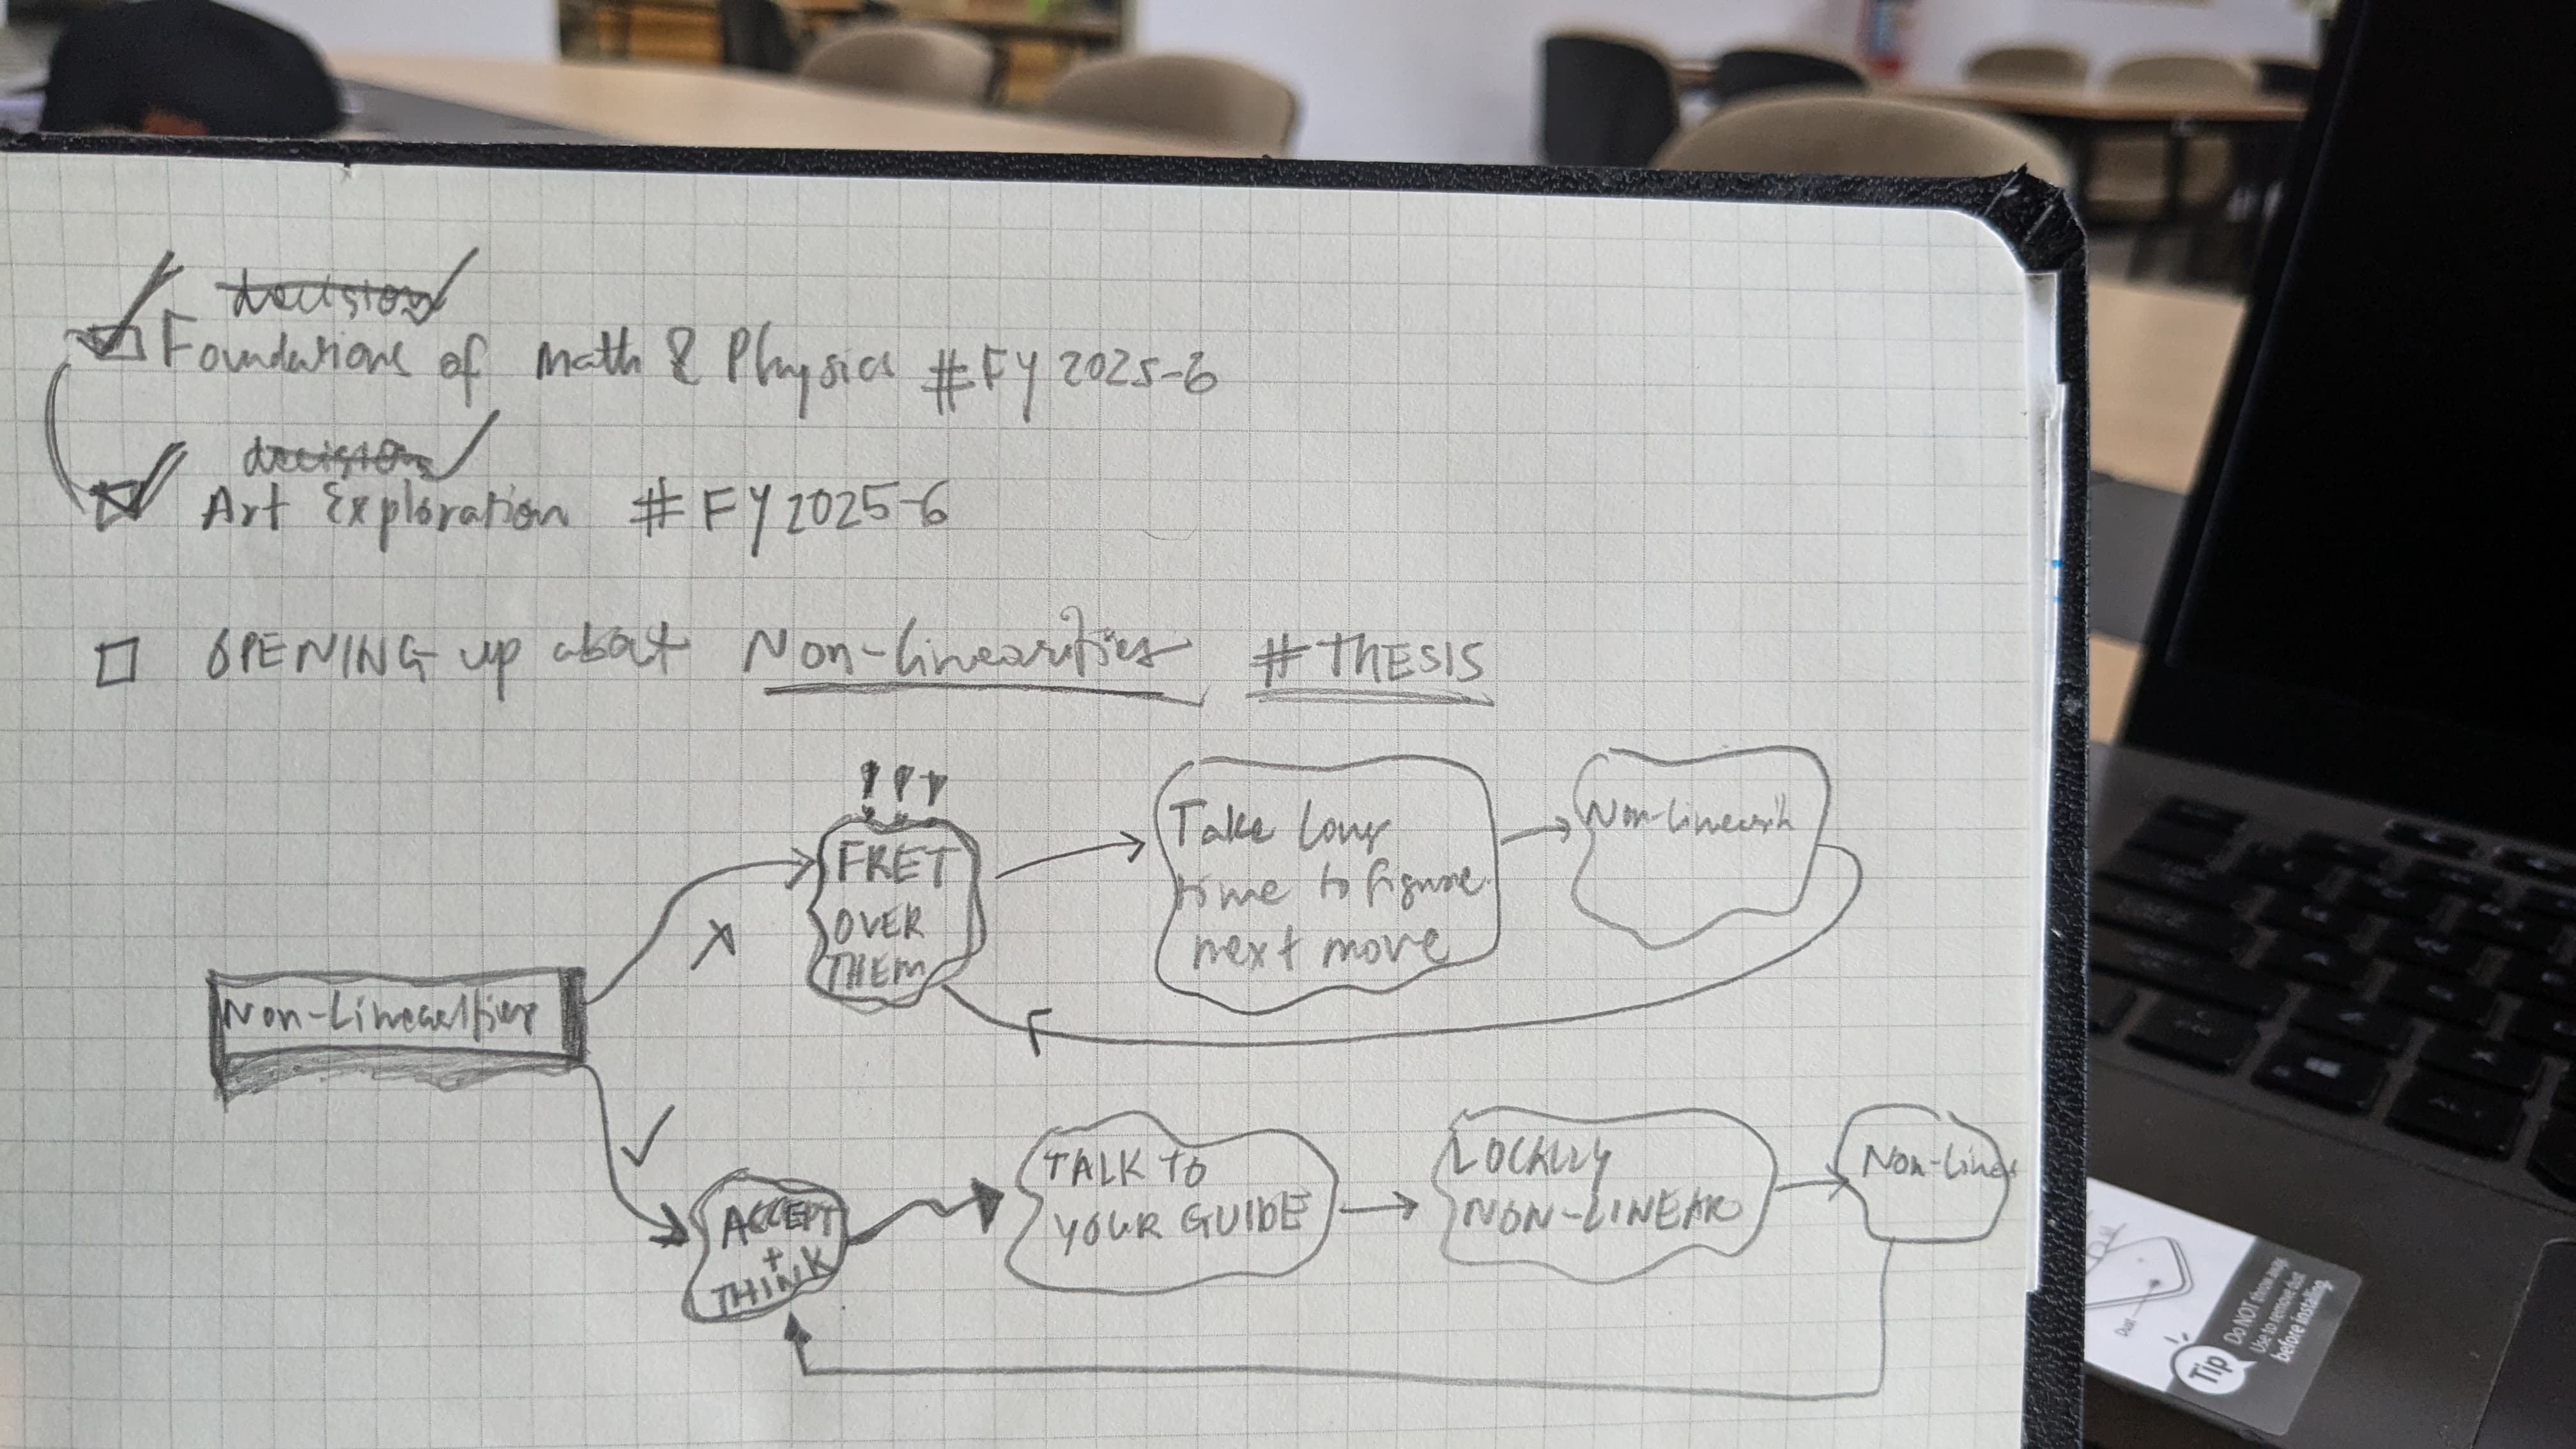 decision
Foundations of Math & Physics #FY 2025-6
decision
Art Exploration #FY 2025-6
OPENING up about Non-linearities #THESIS
FRET
OVER
THEM
Take long
time to figure
next move
Non-linearit
Non-Linearities
ACCEPT
+
THINK
TALK TO
YOUR GUIDE
LOCALLY
NON-LINEAR
Non-Linea
Dust
Tip
Do NOT throw away.
Use to remove dust
before installing.
Alt